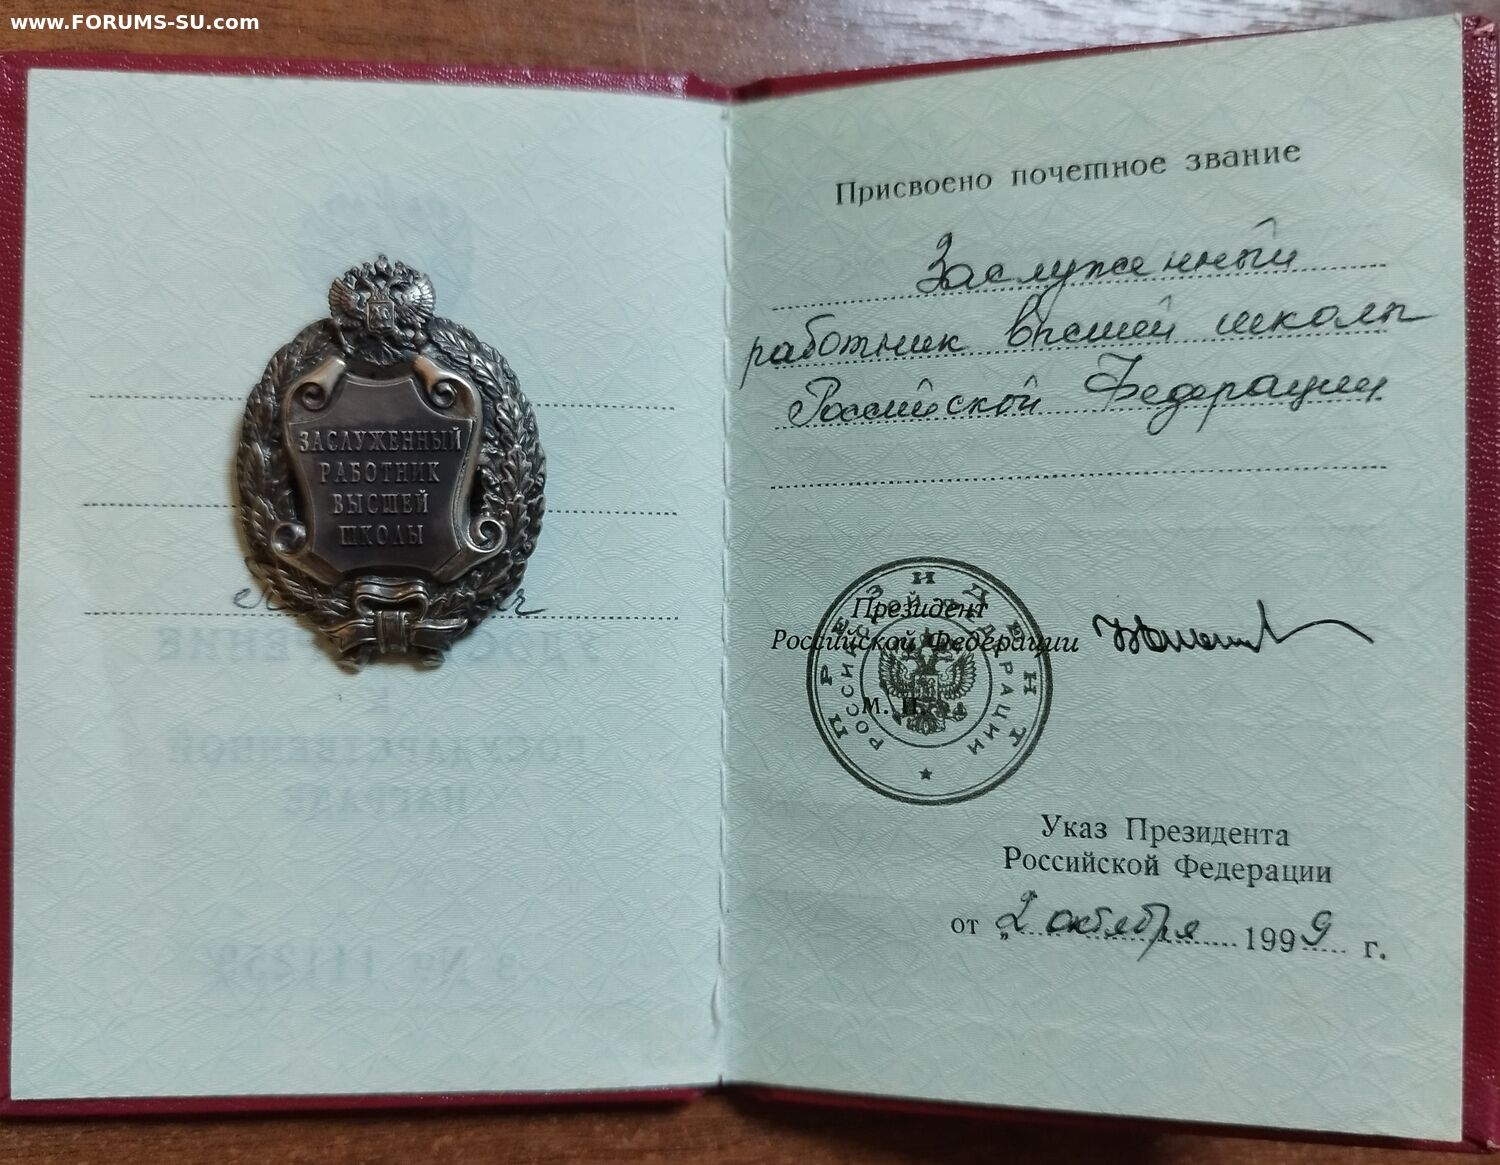 www.FORUMS-SU.com
ЗАСЛУЖЕННЫЙ
РАБОТНИК
ВЫСШЕЙ
ШКОЛЫ
Присвоено почетное звание
Заслуженный
работник высшей школы
Российской Федерации
ПРЕЗИДЕНТ
РОССИЙСКОЙ ФЕДЕРАЦИИ
Президент
Российской Федерации
М. П.
Указ Президента
Российской Федерации
от „2 октября 1999 г.